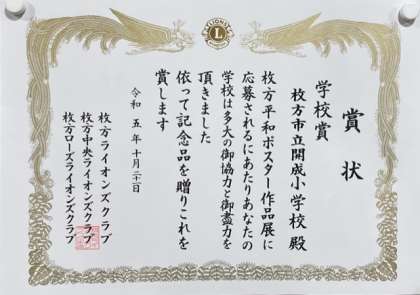 賞状
学校賞
枚方市立開成小学校 殿
枚方平和ポスター作品展に
応募されるにあたりあなたの
学校は多大の御協力と御盡力を
頂きました
依って記念品を贈りこれを
賞します
令和 五年十月二二日
枚方ライオンズクラブ
枚方中央ライオンズクラブ
枚方ローズライオンズクラブ
LIONS
L